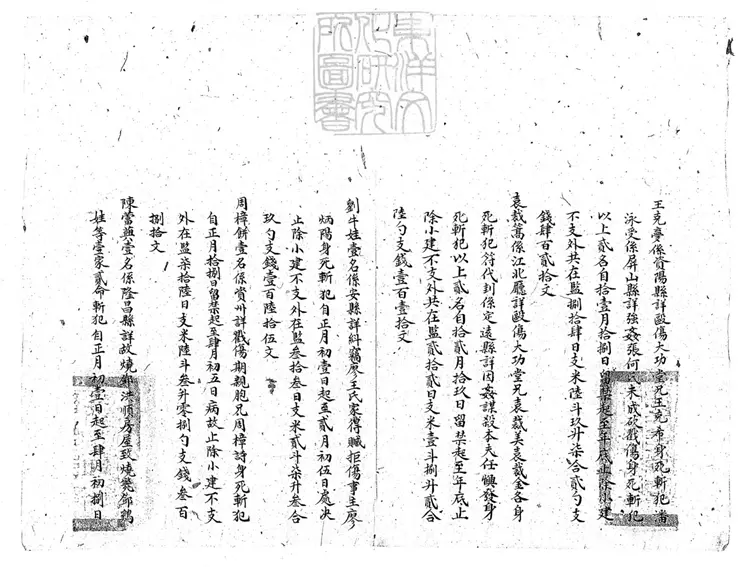 王克夢係資陽縣詳毆傷大功堂兄王克希身死斬犯潘
泳受係屏山縣詳強姦張何氏未成砍戳傷身死斬犯
以上貳名自拾壹月拾捌日留禁起至年底止除小建
不支外共在監捌拾肆日支米陸斗玖升柒合貳勺支
錢肆百貳拾文
袁裁萬係江北廳詳毆傷大功堂兄袁裁美袁裁金各身
死斬犯苻代剴係定遠縣詳因姦謀殺本夫任 發身
死斬犯以上貳名自拾貳月拾玖日留禁起至年底止
除小建不支外共在監貳拾貳日支米壹斗捌升貳合
陸勺支錢壹百壹拾文
劉牛娃壹名係安縣詳糾竊廖王氏家得贓拒傷事主廖
炳陽身死斬犯自正月初壹日起至貳月初伍日處決
止除小建不支外在監叁拾叁日支米貳斗柒升叁合
玖勺支錢壹百陸拾伍文
周樟餅壹名係資州詳戳傷期親胞兄周樟詩身死斬犯
自正月拾捌日留禁起至肆月初五日病故止除小建不支
外在監柒拾陸日支米陸斗叁升零捌勺支錢叁百
捌拾文
陳當與壹名係隆昌縣詳故燒鄒洪順房屋致燒斃鄒鵶
娃等壹家貳命斬犯自正月初壹日起至肆月初捌日
東洋文
化研究
所圖書